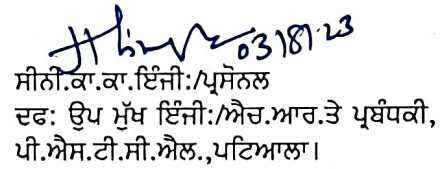 03/8/23
ਸੀਨੀ.ਕਾ.ਕਾ.ਇੰਜੀ:/ਪ੍ਰਸੋਨਲ
ਦਫ: ਉਪ ਮੁੱਖ ਇੰਜੀ:/ਐਚ.ਆਰ.ਤੇ ਪ੍ਰਬੰਧਕੀ,
ਪੀ.ਐਸ.ਟੀ.ਸੀ.ਐਲ.,ਪਟਿਆਲਾ।